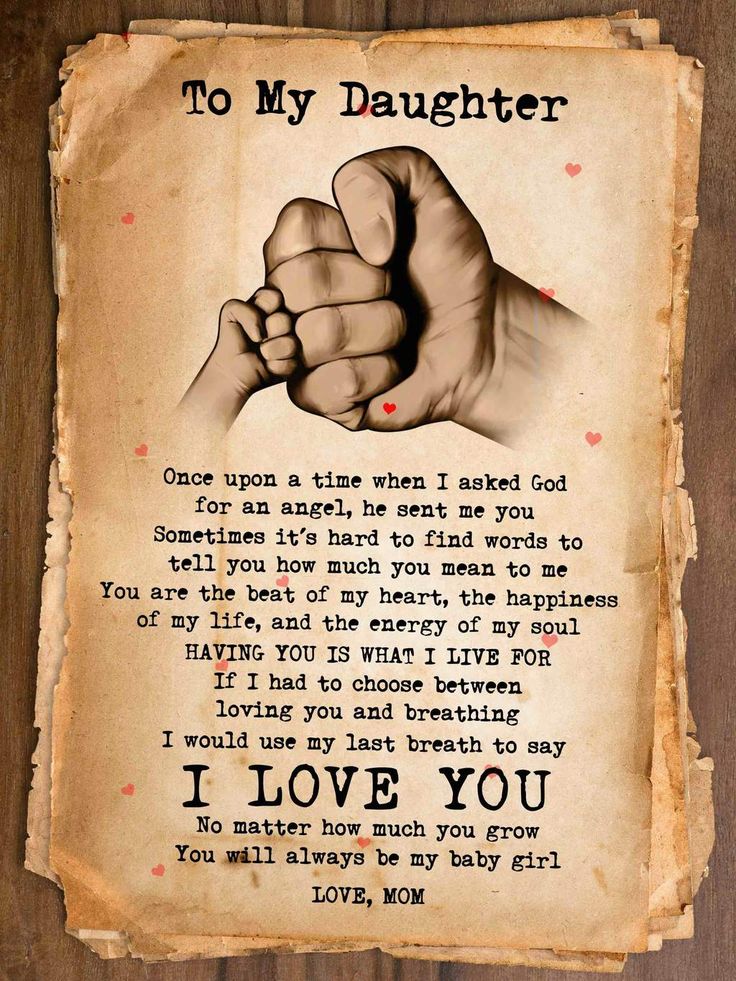 To My Daughter
Once upon a time when I asked God
for an angel, he sent me you
Sometimes it's hard to find words to
tell you how much you mean to me
You are the beat of my heart, the happiness
of my life, and the energy of my soul
HAVING YOU IS WHAT I LIVE FOR
If I had to choose between
loving you and breathing
I would use my last breath to say
I LOVE YOU
No matter how much you grow
You will always be my baby girl
LOVE, MOM